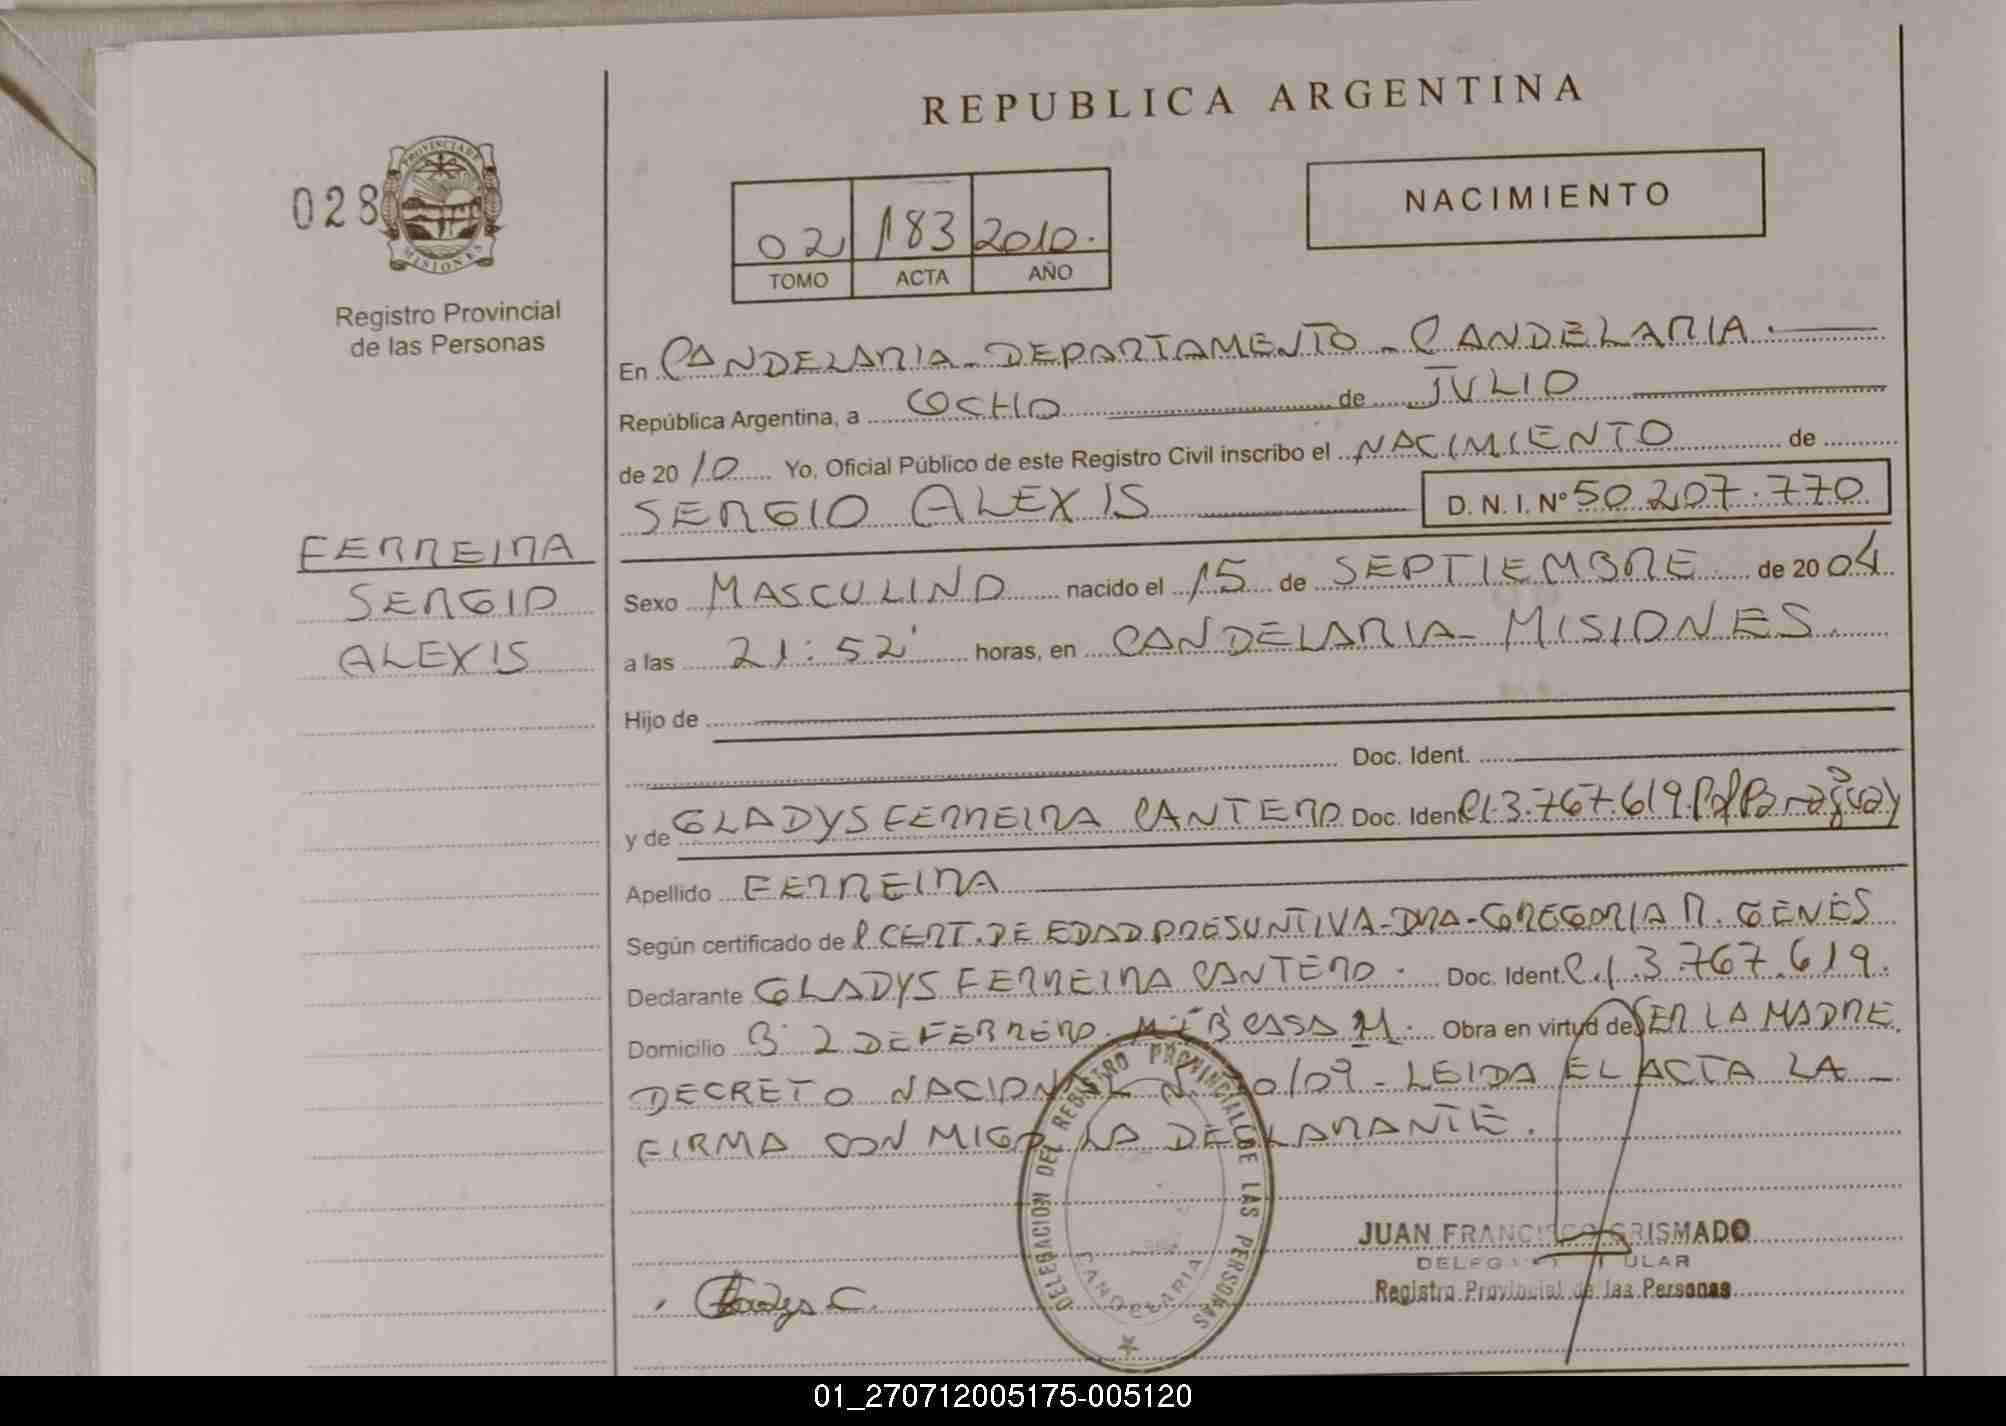 REPUBLICA ARGENTINA
028
PROVINCIA DE
MISIONES
Registro Provincial
de las Personas
NACIMIENTO
02 183 2010.
TOMO ACTA AÑO
En CANDELARIA - DEPARTAMENTO - CANDELARIA.
República Argentina, a OCHO de JULIO
de 2010 Yo, Oficial Público de este Registro Civil inscribo el NACIMIENTO de
SERGIO ALEXIS D. N. I. Nº 50.207.770
FERREIRA
SERGIO
ALEXIS
Sexo MASCULINO nacido el 15 de SEPTIEMBRE de 2004
a las 21:52' horas, en CANDELARIA - MISIONES.
Hijo de
Doc. Ident.
y de GLADYS FERREIRA CANTERO Doc. Ident C.I 3.767.619 Paraguay
Apellido FERREIRA
Según certificado de CERT. DE EDAD PRESUNTIVA - DRA - GREGORIA R. GENES
Declarante GLADYS FERREIRA CANTERO. Doc. Ident C.I. 3.767.619.
Domicilio Bº 2 DE FEBRERO. CASA Obra en virtud de SER LA MADRE.
DECRETO NACIONAL /09 - LEIDA EL ACTA LA -
FIRMA CONMIGO LA DECLARANTE.
DELEGACION DEL REGISTRO PROVINCIAL DE LAS PERSONAS
CANDELARIA
JUAN FRANCISCO GRISMADO
DELEGADO TITULAR
Registro Provincial de las Personas
Gladys C.
01_270712005175-005120